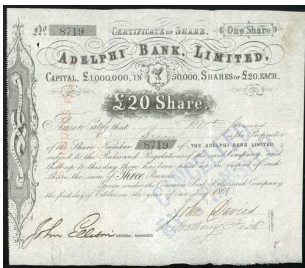 No 8719 CERTIFICATE OF SHARE. One Share
ADELPHI BANK, LIMITED.
CAPITAL, £1,000,000, IN 50,000, SHARES OF £20, EACH.
£20 Share.
This is to Certify that
is the Proprietor
of the Share Number 8719 OF THE ADELPHI BANK LIMITED
subject to the Rules and Regulations of the said Company and
that up to this day there has been paid in respect of such
Share, the sum of Three Pounds.
Given under the Common Seal of the said Company
the first day of October in the year of our Lord
John Davies
John Edison GENERAL MANAGER